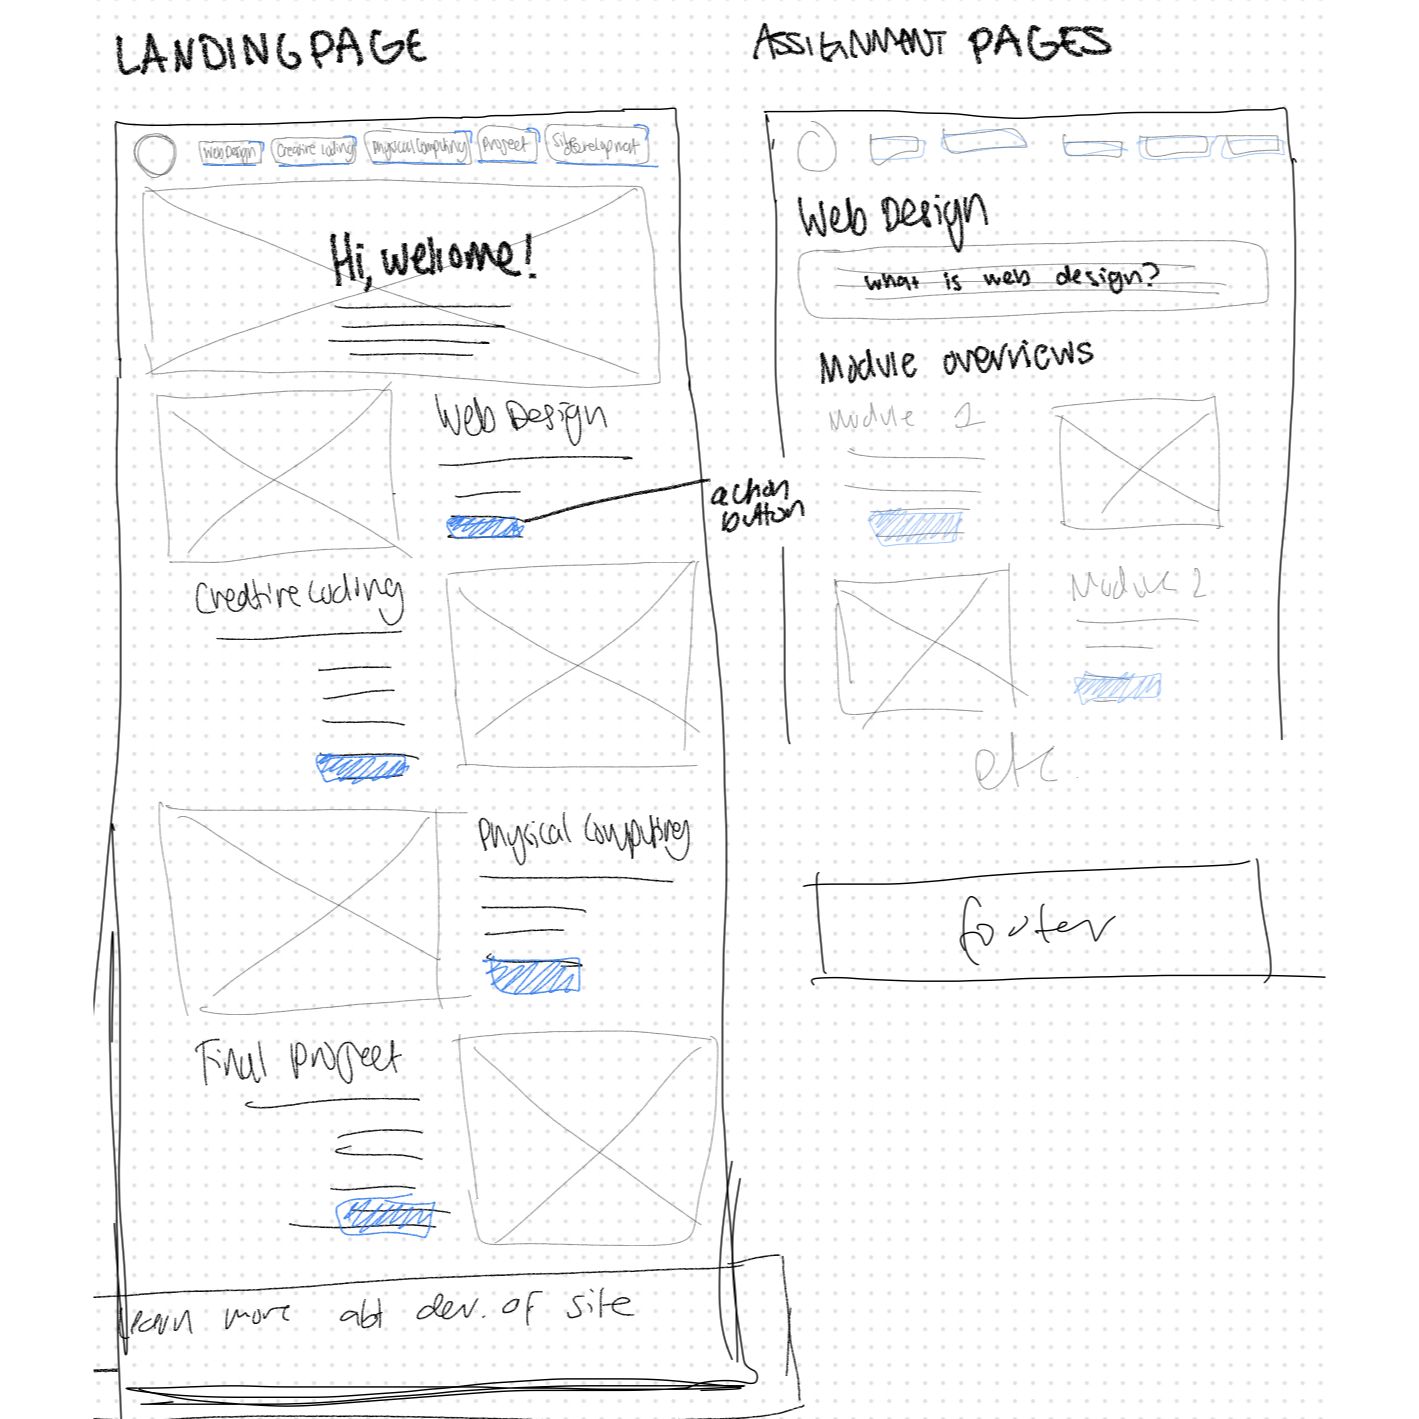 LANDING PAGE
Web Design
Creative Coding
Physical Computing
Project
Site Development
Hi, welcome!
Web Design
action
button
Creative Coding
Physical Computing
Final Project
learn more abt dev. of site
ASSIGNMENT PAGES
Web Design
what is web design?
Module overviews
Module 1
Module 2
etc
footer